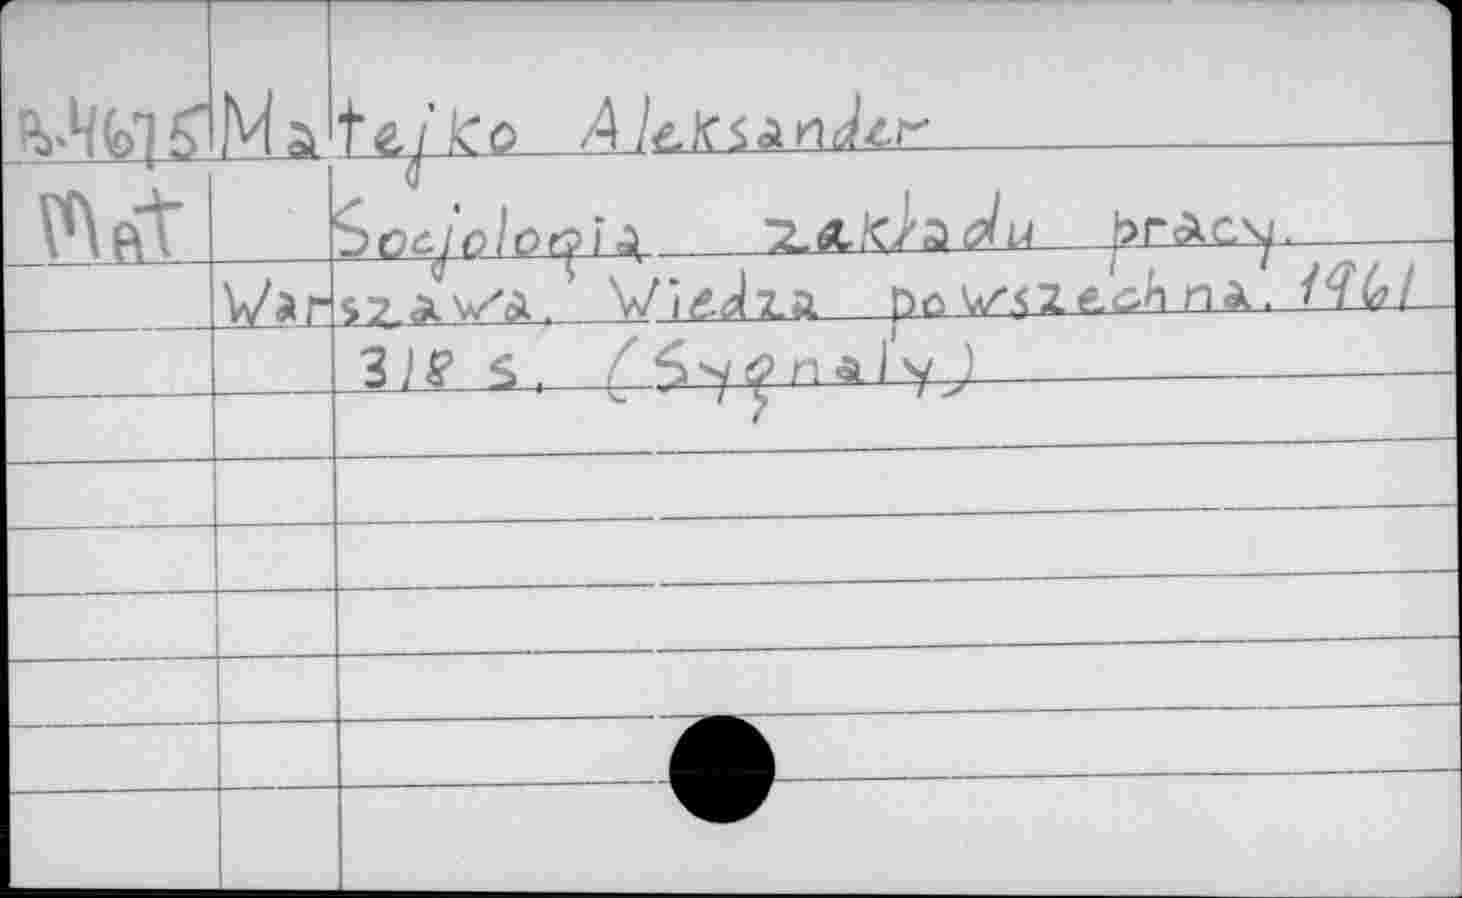 B.4675 Matejko Aleksander
Mat Socjologia zakładu pracy.
Warszawa. Wiedza powszechna. 1961
318 s. (Sygnaly)